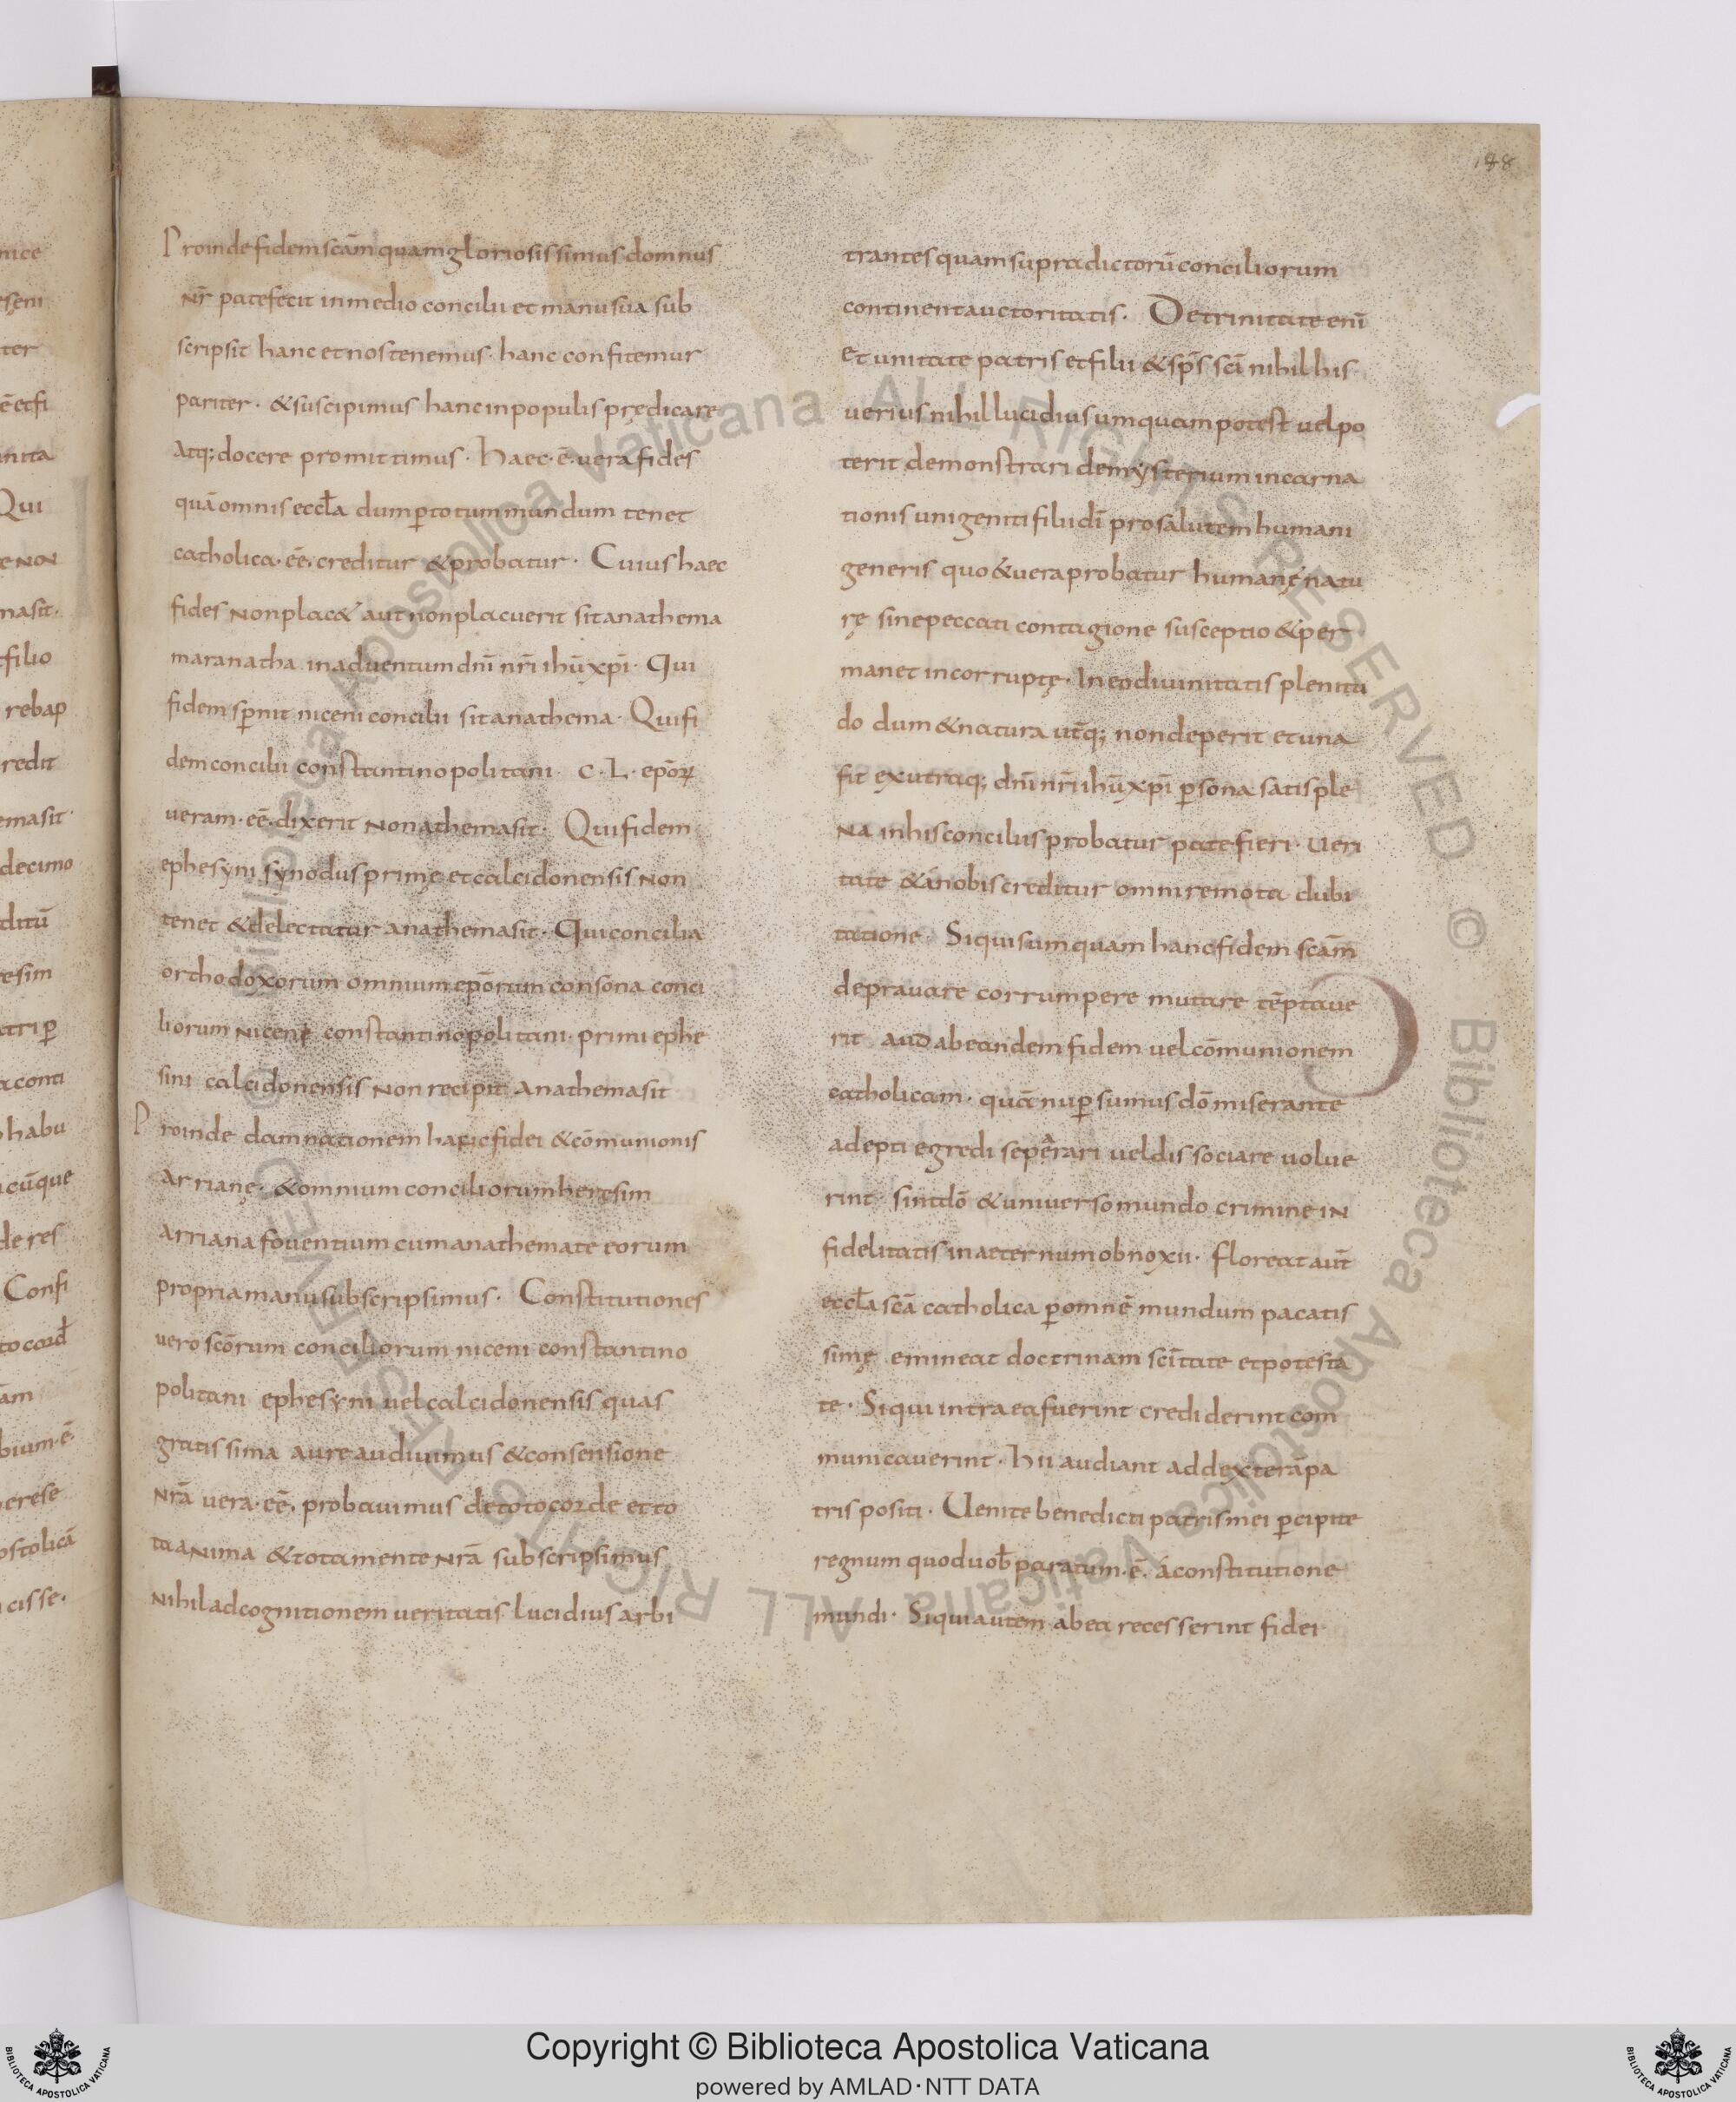 188
nice
eseni
ter
ē etfi
unita
Qui
e NON
masit·
filio
rebap
redit
emasit·
decimo
ditū
esim
atri ꝑ
a conti
habu
cūque
de res
Confi
to cord̄
ām
bium·ē·
erese
ostolicā
cisse·
Proinde fidem scām quam gloriosissimus domnus
nr̄ patefecit in medio concilii et manu sua sub
scripsit hanc et nos tenemus· hanc confitemur
pariter· & suscipimus hanc in populis prędicare
atq; docere promittimus· Haec·ē·vera fides
quā omnis eccła dum ꝑ totum mundum tenet
catholica·ēē·creditur & probatur· Cuius haec
fides non plac& aut non placuerit sit anathema
maranatha in adventum dn̄i nr̄i ihū xp̄i· Qui
fidem sꝑnit niceni concilii sit anathema· Qui fi
dem concilii constantinopolitani· C·L· ep̄oꝝ
veram·ēē·dixerit non athemasit· Qui fidem
ephesyni synodus primę et calcidonensis non
tenet & delectatur anathemasit· Qui concilia
orthodoxorum omnium ep̄orum consona conci
liorum nicenę constantinopolitani· primi ephe
sini calcidonensis non recipit anathemasit
Proinde damnationem haric fidei & cōmunionis
arrianę· & omnium conciliorum heręsim
arriana foventium cum anathemate eorum
propria manu subscripsimus· Constitutiones
vero scōrum conciliorum niceni constantino
politani ephesyni vel calcidonensis quas
gratissima aure audivimus & consensione
nrā vera·ēē· probavimus de toto corde et to
ta anima & tota mente nrā subscripsimus
Nihil ad cognitionem veritatis lucidius arbi
trantes quam supradictorū conciliorum
continent auctoritatis· De trinitate enī
et unitate patris et filii & sp̄s scī nihil his
verius nihil lucidius umquam potest vel po
terit demonstrari de mysterium incarna
tionis unigeniti filii dī pro salutem humani
generis quo & vera probatur humanę natu
rę sine peccati contagione susceptio & per
manet incorruptę· In eo divinitatis plenitu
do dum & natura ut̄q; non deperit et una
fit ex utraq; dn̄i nr̄i ihū xp̄i ꝑsona satis ple
na in his conciliis probatur patefieri· Veri
tate & a nobis creditur omni remota dubi
tatione· Si quis umquam hanc fidem scām
depravare corrumpere mutare tēptave
rit aut ab eandem fidem vel cōmunionem
catholicam· quā nuꝑ sumus dō miserante
adepti egredi seperari vel dissociare volue
rint· sint dō & universo mundo crimine in
fidelitatis in aeternum obnoxii· floreat aut̄
eccła scā catholica ꝑ omnē mundum pacatis
simę emineat doctrinam scītate et potesta
te· Si qui intra ea fuerint crediderint com
municaverint· Hii audiant ad dexterā pa
tris positi· Venite benedicti patris mei ꝑcipite
regnum quod vob̄ paratum·ē· a constitutione
mundi· Si qui autem ab ea recesserint fidei
© Biblioteca Apostolica Vaticana ALL RIGHTS RESERVED © Biblioteca Apostolica Vaticana ALL RIGHTS RESERVED
Copyright © Biblioteca Apostolica Vaticana
powered by AMLAD·NTT DATA
BIBLIOTECA APOSTOLICA VATICANA
BIBLIOTECA APOSTOLICA VATICANA